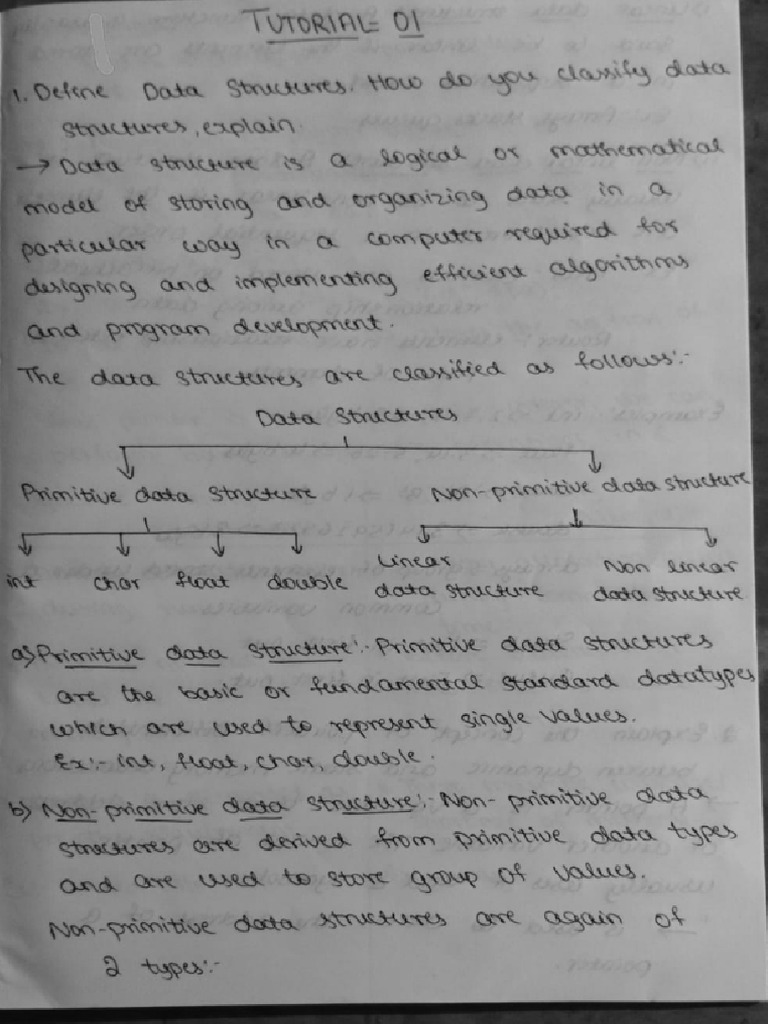 TUTORIAL- 01
1. Define Data Structures. How do you classify data
structures, explain.
→ Data structure is a logical or mathematical
model of storing and organizing data in a
particular way in a computer required for
designing and implementing efficient algorithms
and program development.
The data structures are classified as follows:-
Data Structures
Primitive data structure Non-primitive data structure
int char float double Linear data structure Non linear data structure
a) Primitive data structure:- Primitive data structures
are the basic or fundamental standard datatypes
which are used to represent single values.
Ex:- int, float, char, double.
b) Non-primitive data structure:- Non-primitive data
structures are derived from primitive data types
and are used to store group of values.
Non-primitive data structures are again of
2 types:-